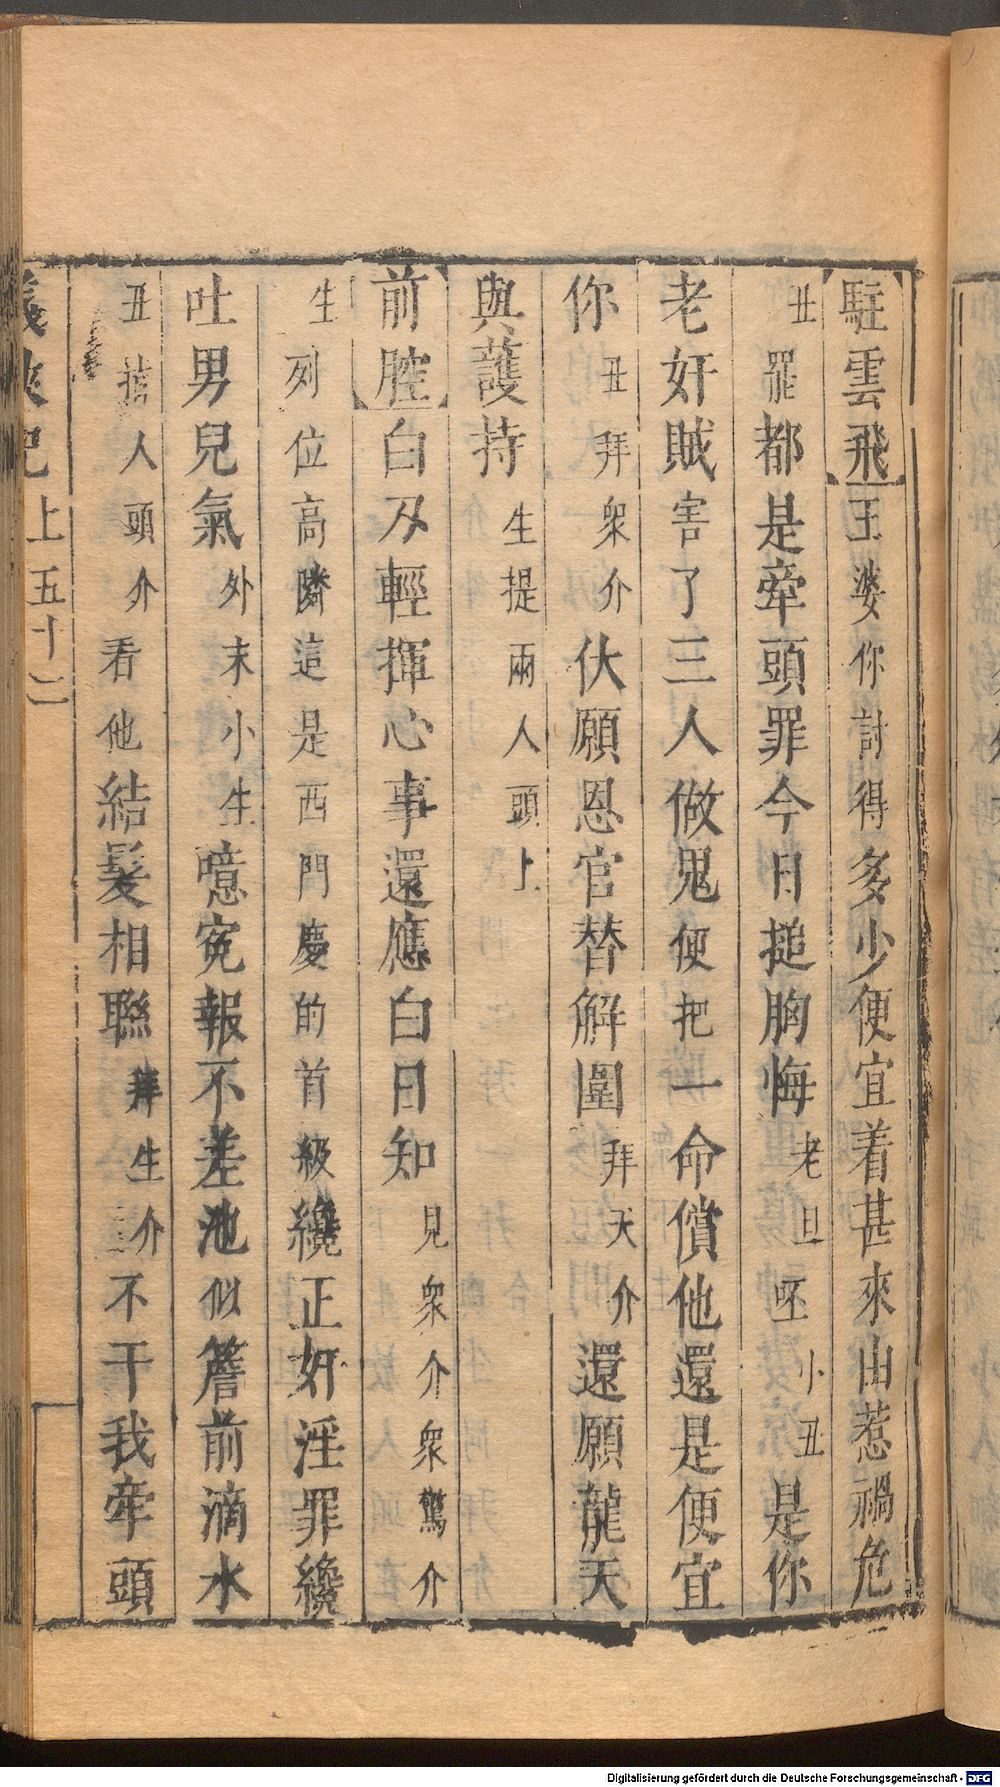 【駐雲飛】王婆你討得多少便宜着甚來由惹禍危
丑罷都是牽頭罪今日搥胸悔老旦呸小丑是你
老奸賊害了三人做鬼便把一命償他還是便宜
你丑拜衆介伏願恩官替解圍拜天介還願龍天
與護持生提兩人頭上
【前腔】白刃輕揮心事還應白日知見衆介衆驚介
生列位高隣這是西門慶的首級纔正奸淫罪纔
吐男兒氣外末小生噫寃報不差池似簷前滴水
丑人頭介看他結髮相聯拜生介不干我牽頭
義俠記上五十二
Digitalisierung gefördert durch die Deutsche Forschungsgemeinschaft - DFG